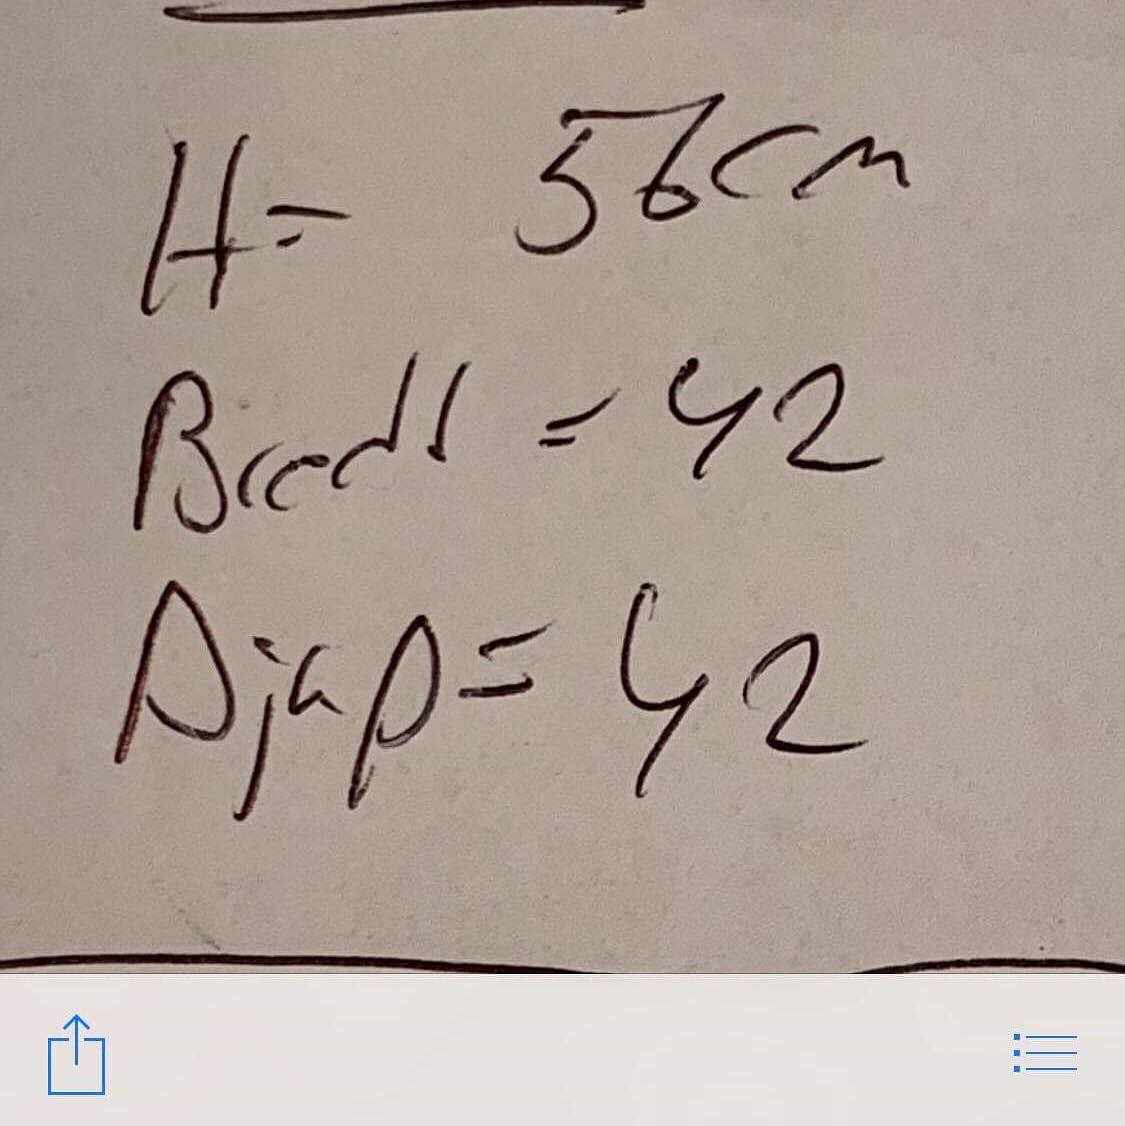 H= 56cm
Bredd = 42
Djup = 42